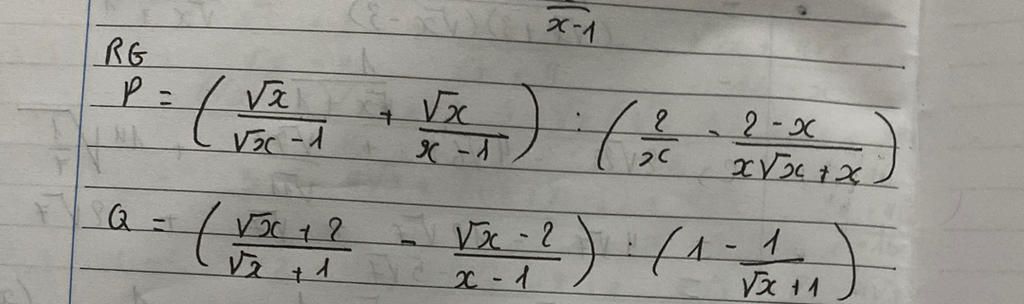 x-1
RG
P = ( √x / (√x - 1) + √x / (x - 1) ) : ( 2 / x - (2 - x) / (x√x + x) )
Q = ( (√x + 2) / (√x + 1) - (√x - 2) / (x - 1) ) : ( 1 - 1 / (√x + 1) )